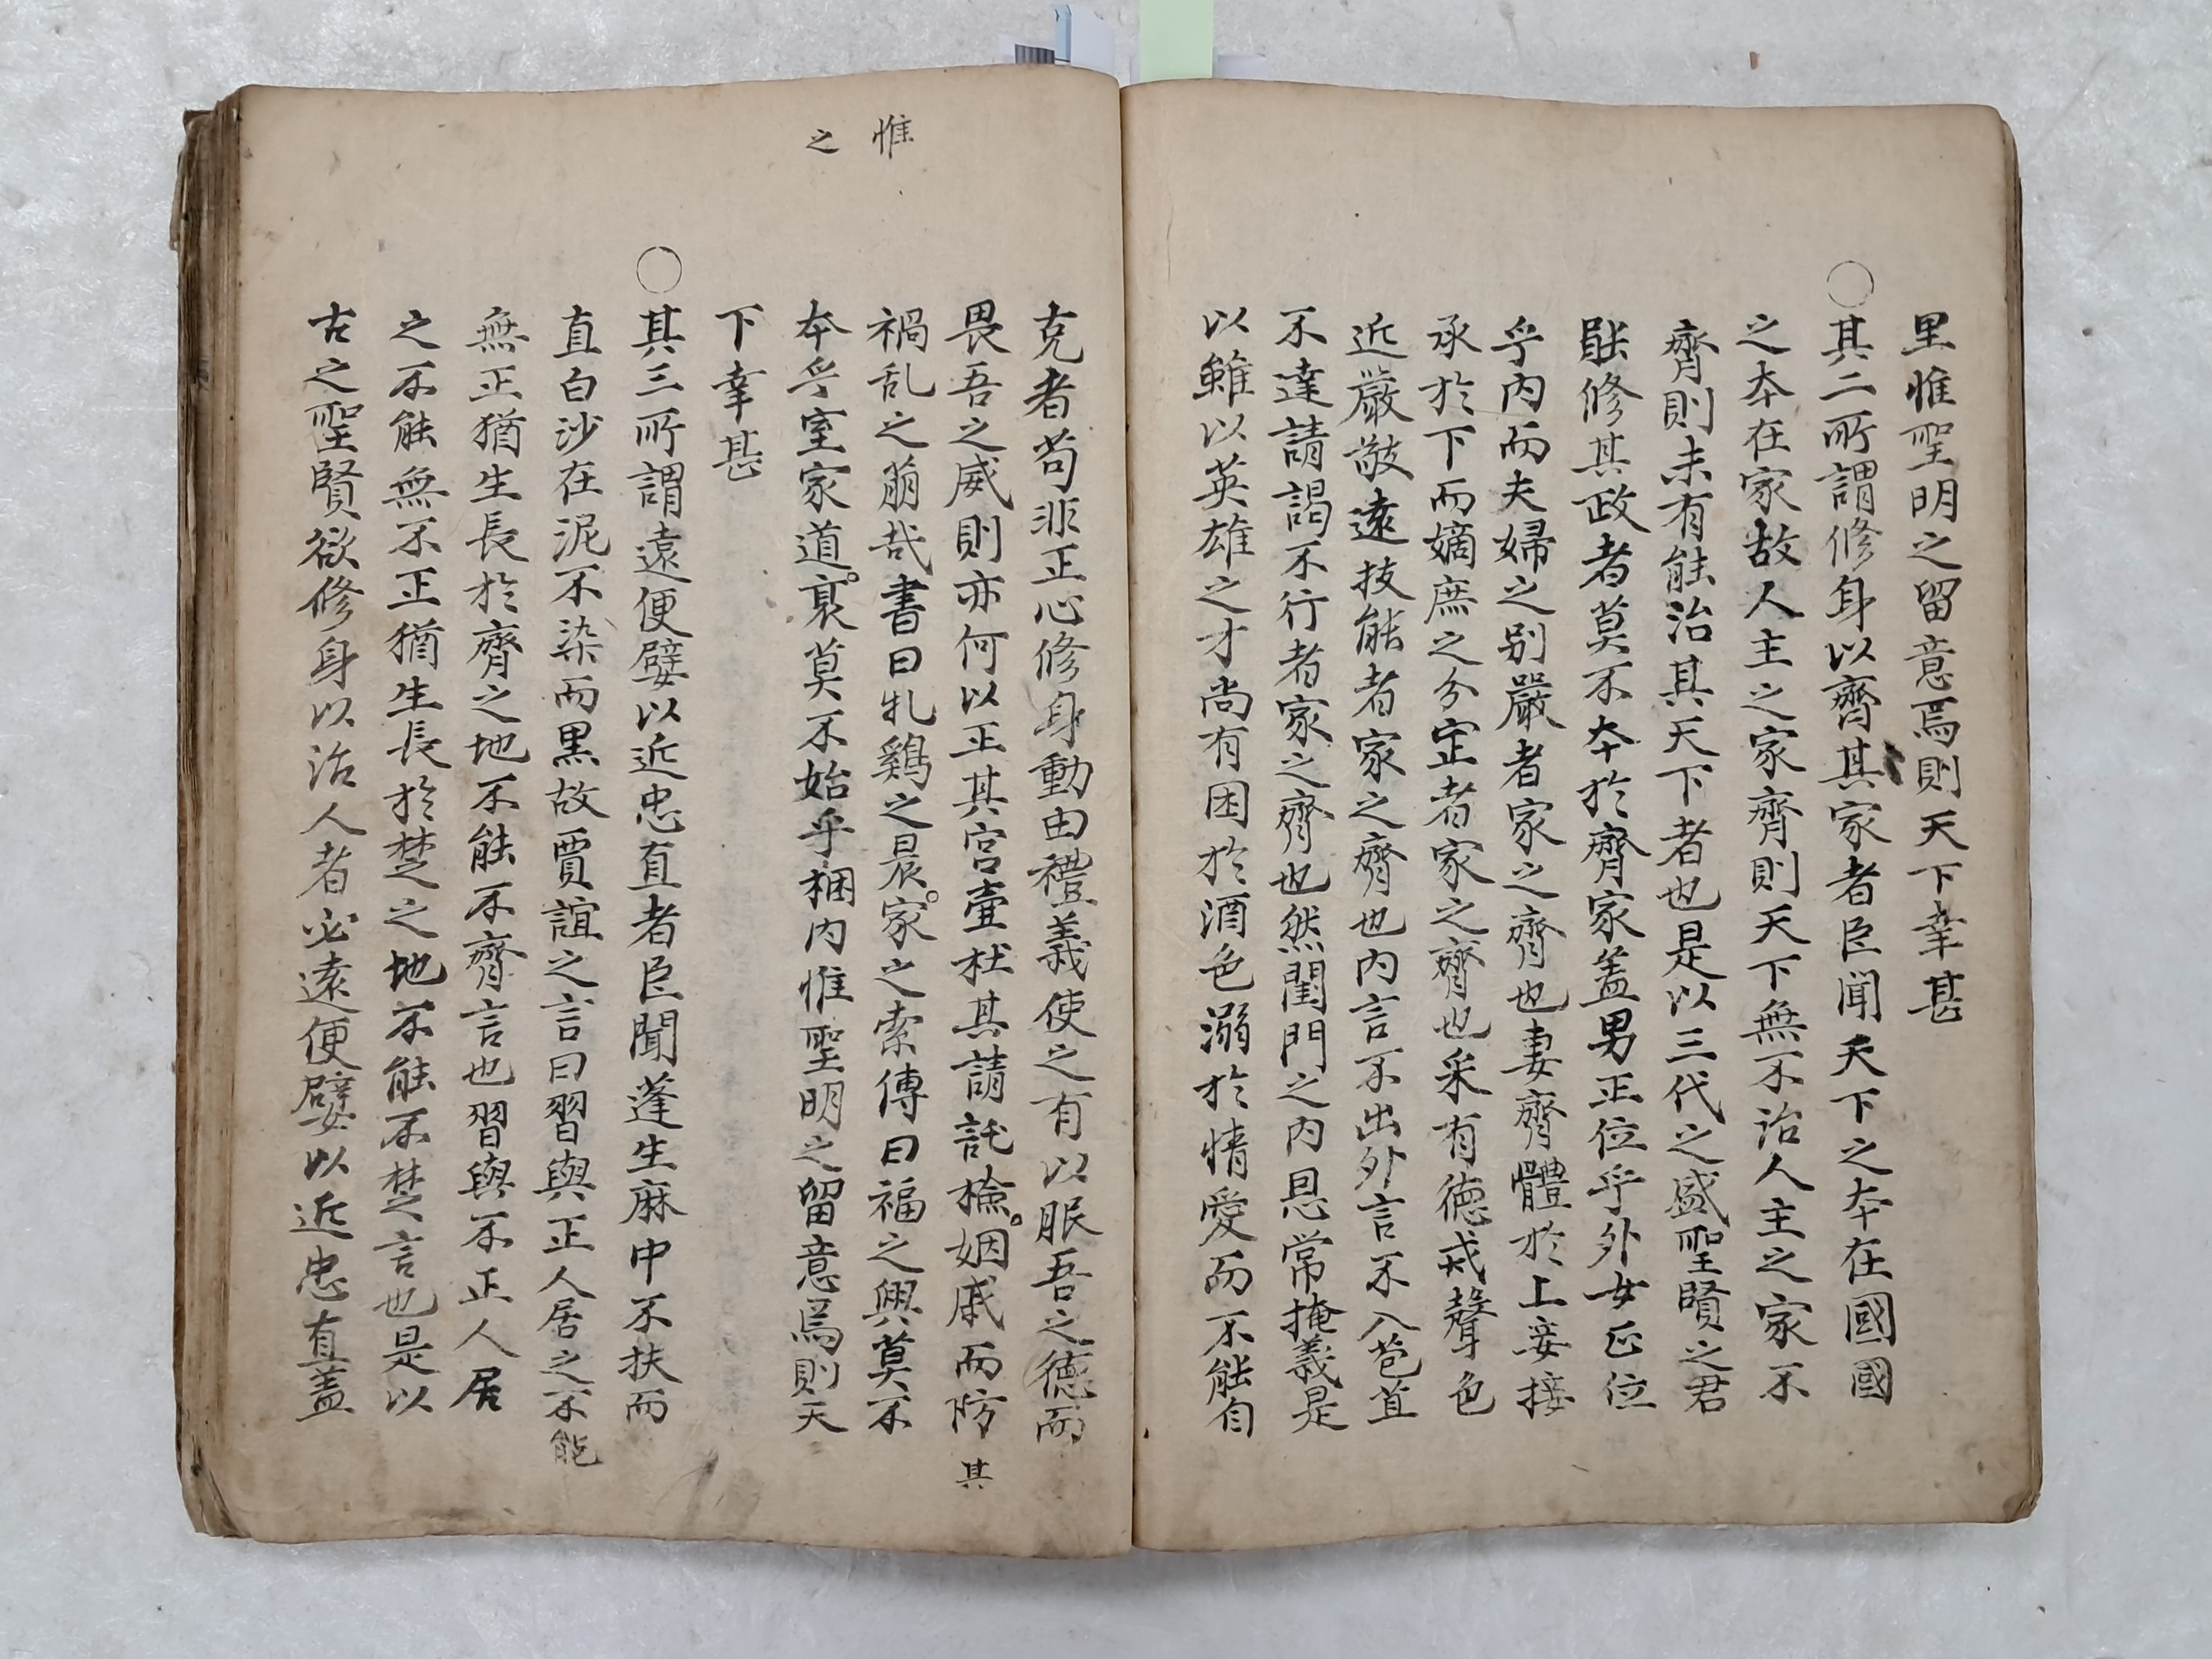 里惟聖明之留意焉則天下幸甚
○其二所謂修身以齊其家者臣聞天下之本在國國
之本在家故人主之家齊則天下無不治人主之家不
齊則未有能治其天下者也是以三代之盛聖賢之君
能修其政者莫不本於齊家盖男正位乎外女正位
乎內而夫婦之別嚴者家之齊也妻齊體於上妾接
承於下而嫡庶之分定者家之齊也采有德戒聲色
近嚴敬遠技能者家之齊也內言不出外言不入苞苴
不達請謁不行者家之齊也然閨門之內恩常掩義是
以雖以英雄之才尚有困於酒色溺於情愛而不能自
克者苟非正心修身動由禮義使之有以服吾之德而
畏吾之威則亦何以正其宮壼杜其請託檢姻戚而防其
禍乱之萠哉書曰牝鷄之晨家之索傳曰福之興莫不
本乎室家道衰莫不始乎梱內惟聖明之留意焉則天
惟
之
下幸甚
○其三所謂遠便嬖以近忠直者臣聞蓬生麻中不扶而
直白沙在泥不染而黑故賈誼之言曰習與正人居之不能
無正猶生長於齊之地不能不齊言也習與不正人居
之不能無不正猶生長於楚之地不能不楚言也是以
古之聖賢欲修身以治人者必遠便嬖以近忠直盖